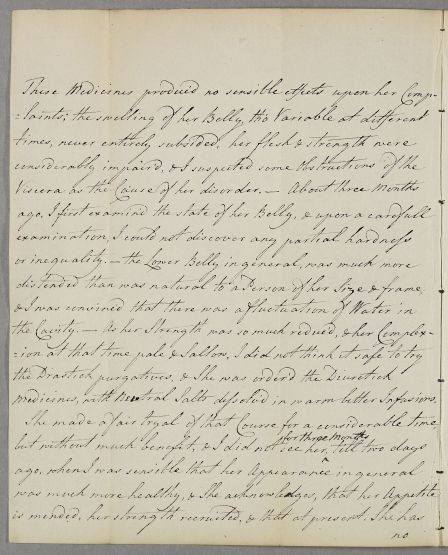 These Medicines produced no sensible effects upon her Comp-
-laints; the swelling of her Belly, tho' Variable at different
times, never entirely subsided, her flesh & strength were
considerably impaird, & I suspected some Obstructions of the
Viscera as the Cause of her disorder. — About three Months
ago, I first examind the state of her Belly, & upon a carefull
examination, I could not discover any partial hardness
or inequality. — the Lower Belly in general, was much more
distended than was natural to a Person of her Size & frame,
& I was convinced that there was a fluctuation of Water in
the Cavity. — As her Strength was so much reduced, & her Complex-
-ion at that time pale & Sallow, I did not think it safe to try
the Drastick purgatives, & She was orderd the Diuretick
Medicines, with Neutral Salts dissolved in warm bitter Infusions.
She made a fair tryal of that Course for a considerable time
but without much benefit, & I did not see her, for three Months till two days
ago, when I was sensible that her Appearance in general
was much more healthy, & She acknowledges, that her Appetite
is mended, her strength recruited, & that at present She has
no